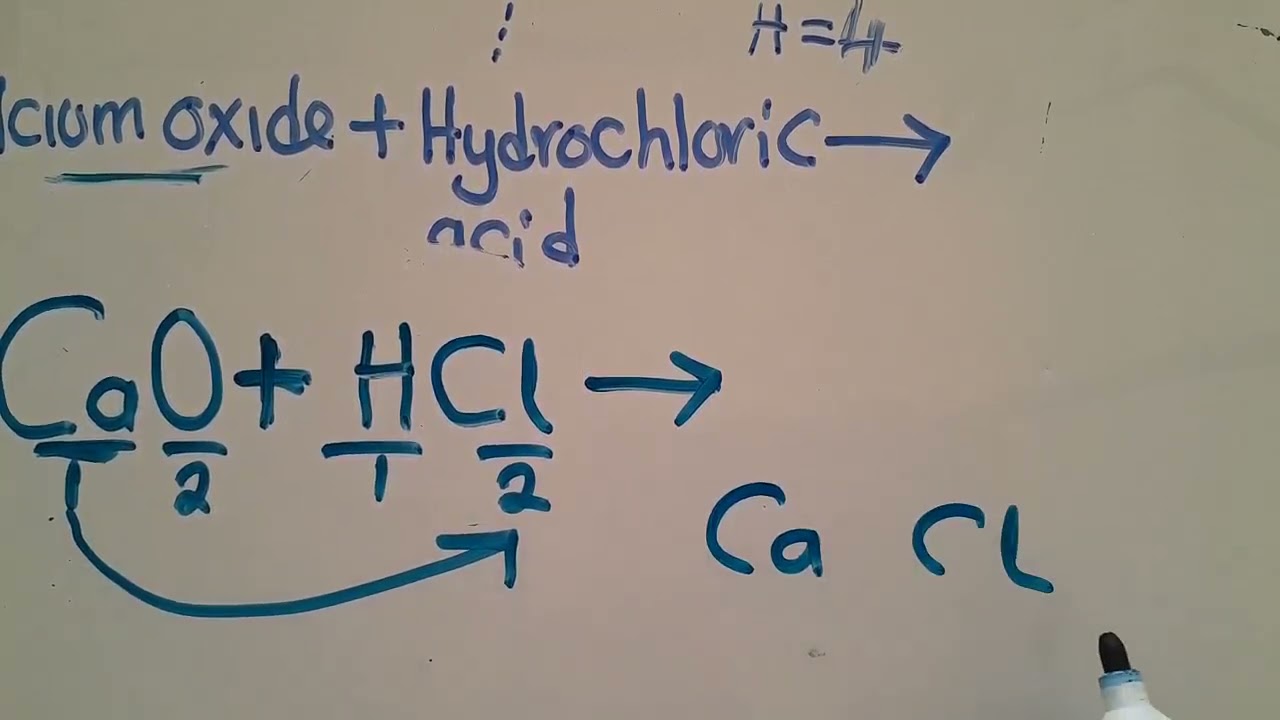 H=4
lcium oxide + Hydrochloric →
acid
CaO + HCl →
1 2 1 2
Ca Cl